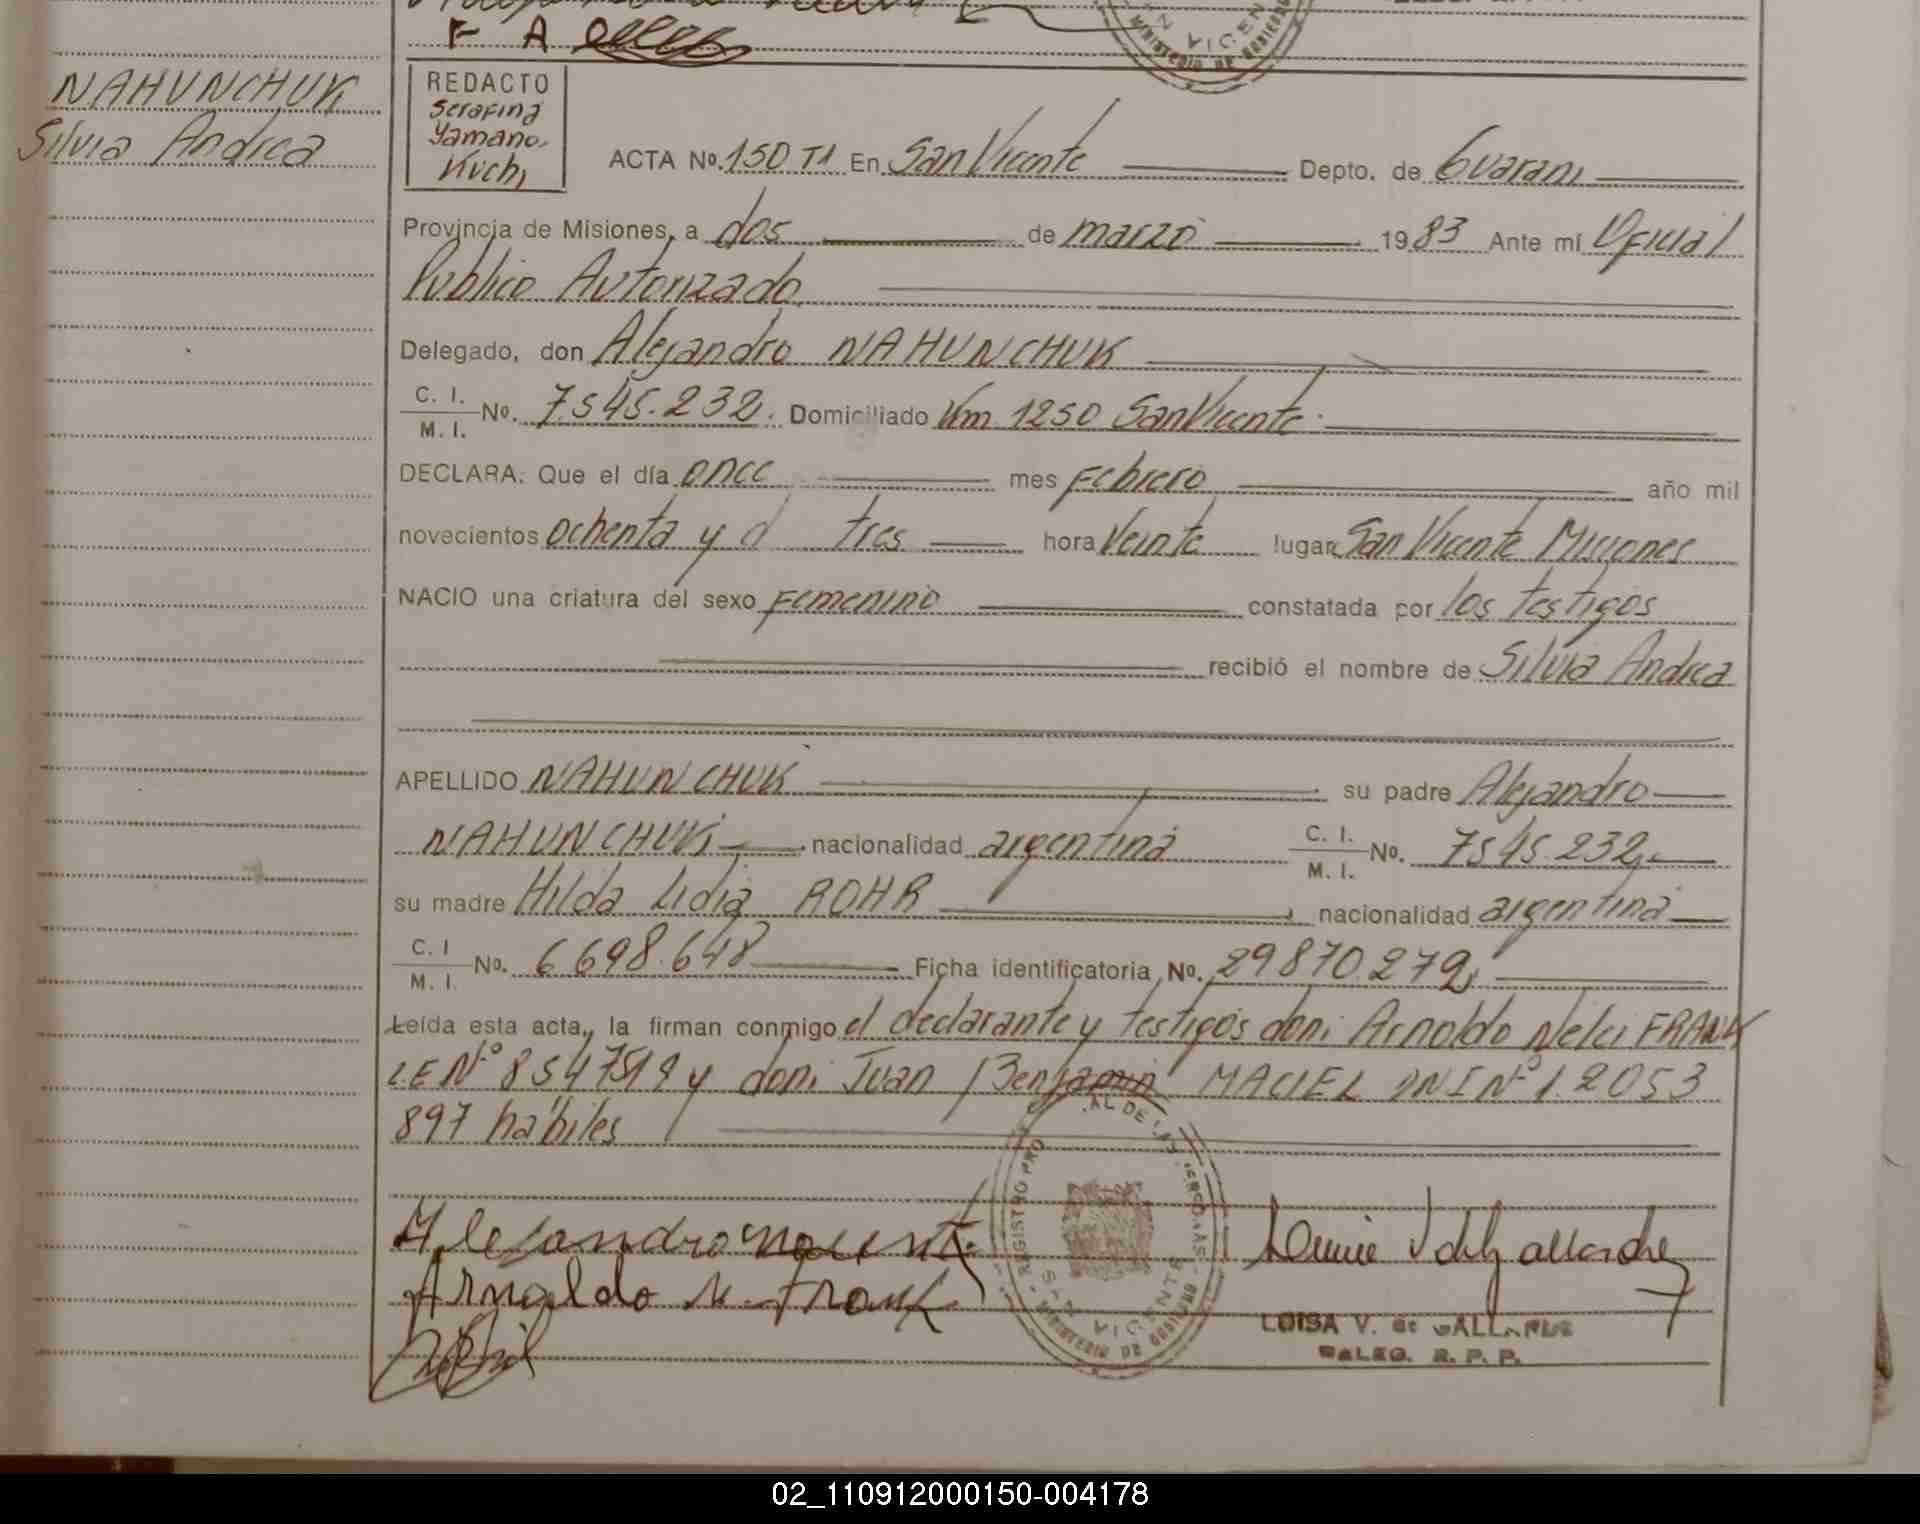 F A
NAHUNCHUK
Silvia Andrea
REDACTO
Serafina
Yamano.
Kuchi
ACTA Nº. 150 T1 En San Vicente Depto. de Guarani
Provincia de Misiones, a dos de marzo 1983 Ante mí Oficial
Publico Autorizado
Delegado, don Alejandro NAHUNCHUK
C. I.
M. I. Nº. 7.545.232. Domiciliado Km 1250 San Vicente.
DECLARA: Que el día once mes Febrero año mil
novecientos ochenta y d tres hora Veinte lugar San Vicente Misiones
NACIO una criatura del sexo Femenino constatada por los testigos
recibió el nombre de Silvia Andrea
APELLIDO NAHUNCHUK su padre Alejandro
NAHUNCHUK nacionalidad argentina C. I.
M. I. Nº. 7545.232
su madre Hilda Lidia ROHR nacionalidad argentina
C. I
M. I. Nº. 6.698.648 Ficha identificatoria Nº. 29870.279
Leída esta acta, la firman conmigo el declarante y testigos don: Arnoldo Nelci FRANK
LE Nº 8547519 y don: Juan Benjamin MACIEL DNI Nº 1.2053
897 habiles
Arnaldo N. Frank
REGISTRO PRO AL DE LAS PERSONAS
SAN VICENTE
MINISTERIO DE GOBIERNO
LUISA V. de GALLARDO
DALEG. R. P. P.
02_110912000150-004178